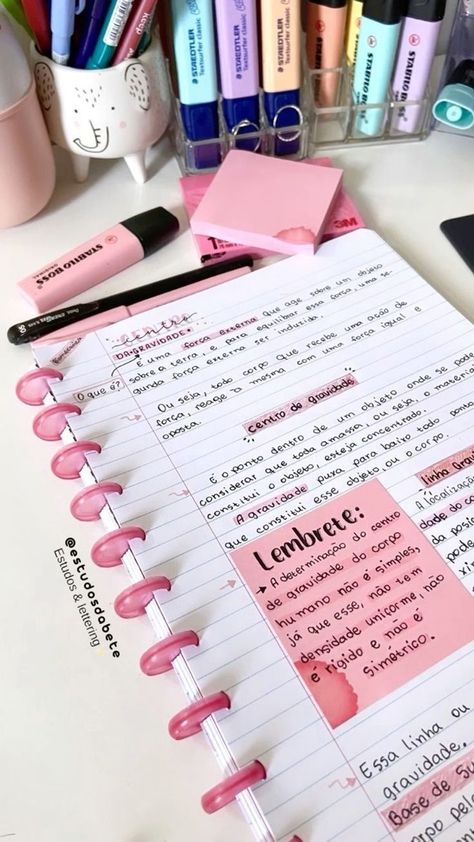 STAEDTLER
Textsurfer classic
STAEDTLER
Textsurfer classic
STAEDTLER
Textsurfer classic
STABILO BOSS
STABILO BOSS
3M
STABILO BOSS
centro
DA GRAVIDADE
O que é?
É uma força externa que age sobre um objeto
sobre a terra, e para equilibrar essa força, uma se-
gunda força externa ser induzida.
Ou seja, todo corpo que recebe uma ação de
força, reage a mesma com uma força igual e
oposta.
centro de gravidade
É o ponto dentro de um objeto onde se pode
considerar que toda a massa, ou seja, o material
constitui o objeto, esteja concentrado.
A gravidade puxa para baixo todo ponto
que constitui esse objeto, ou o corpo.
Lembrete:
A determinação do centro
de gravidade do corpo
humano não é simples,
já que esse, não tem
densidade uniforme, não
é rígido e não é
simétrico.
linha Gravi
A localização
dade do
da posi
Essa linha ou
gravidade,
Base de Su
corpo pel
@estudosdabete
Estudos & lettering